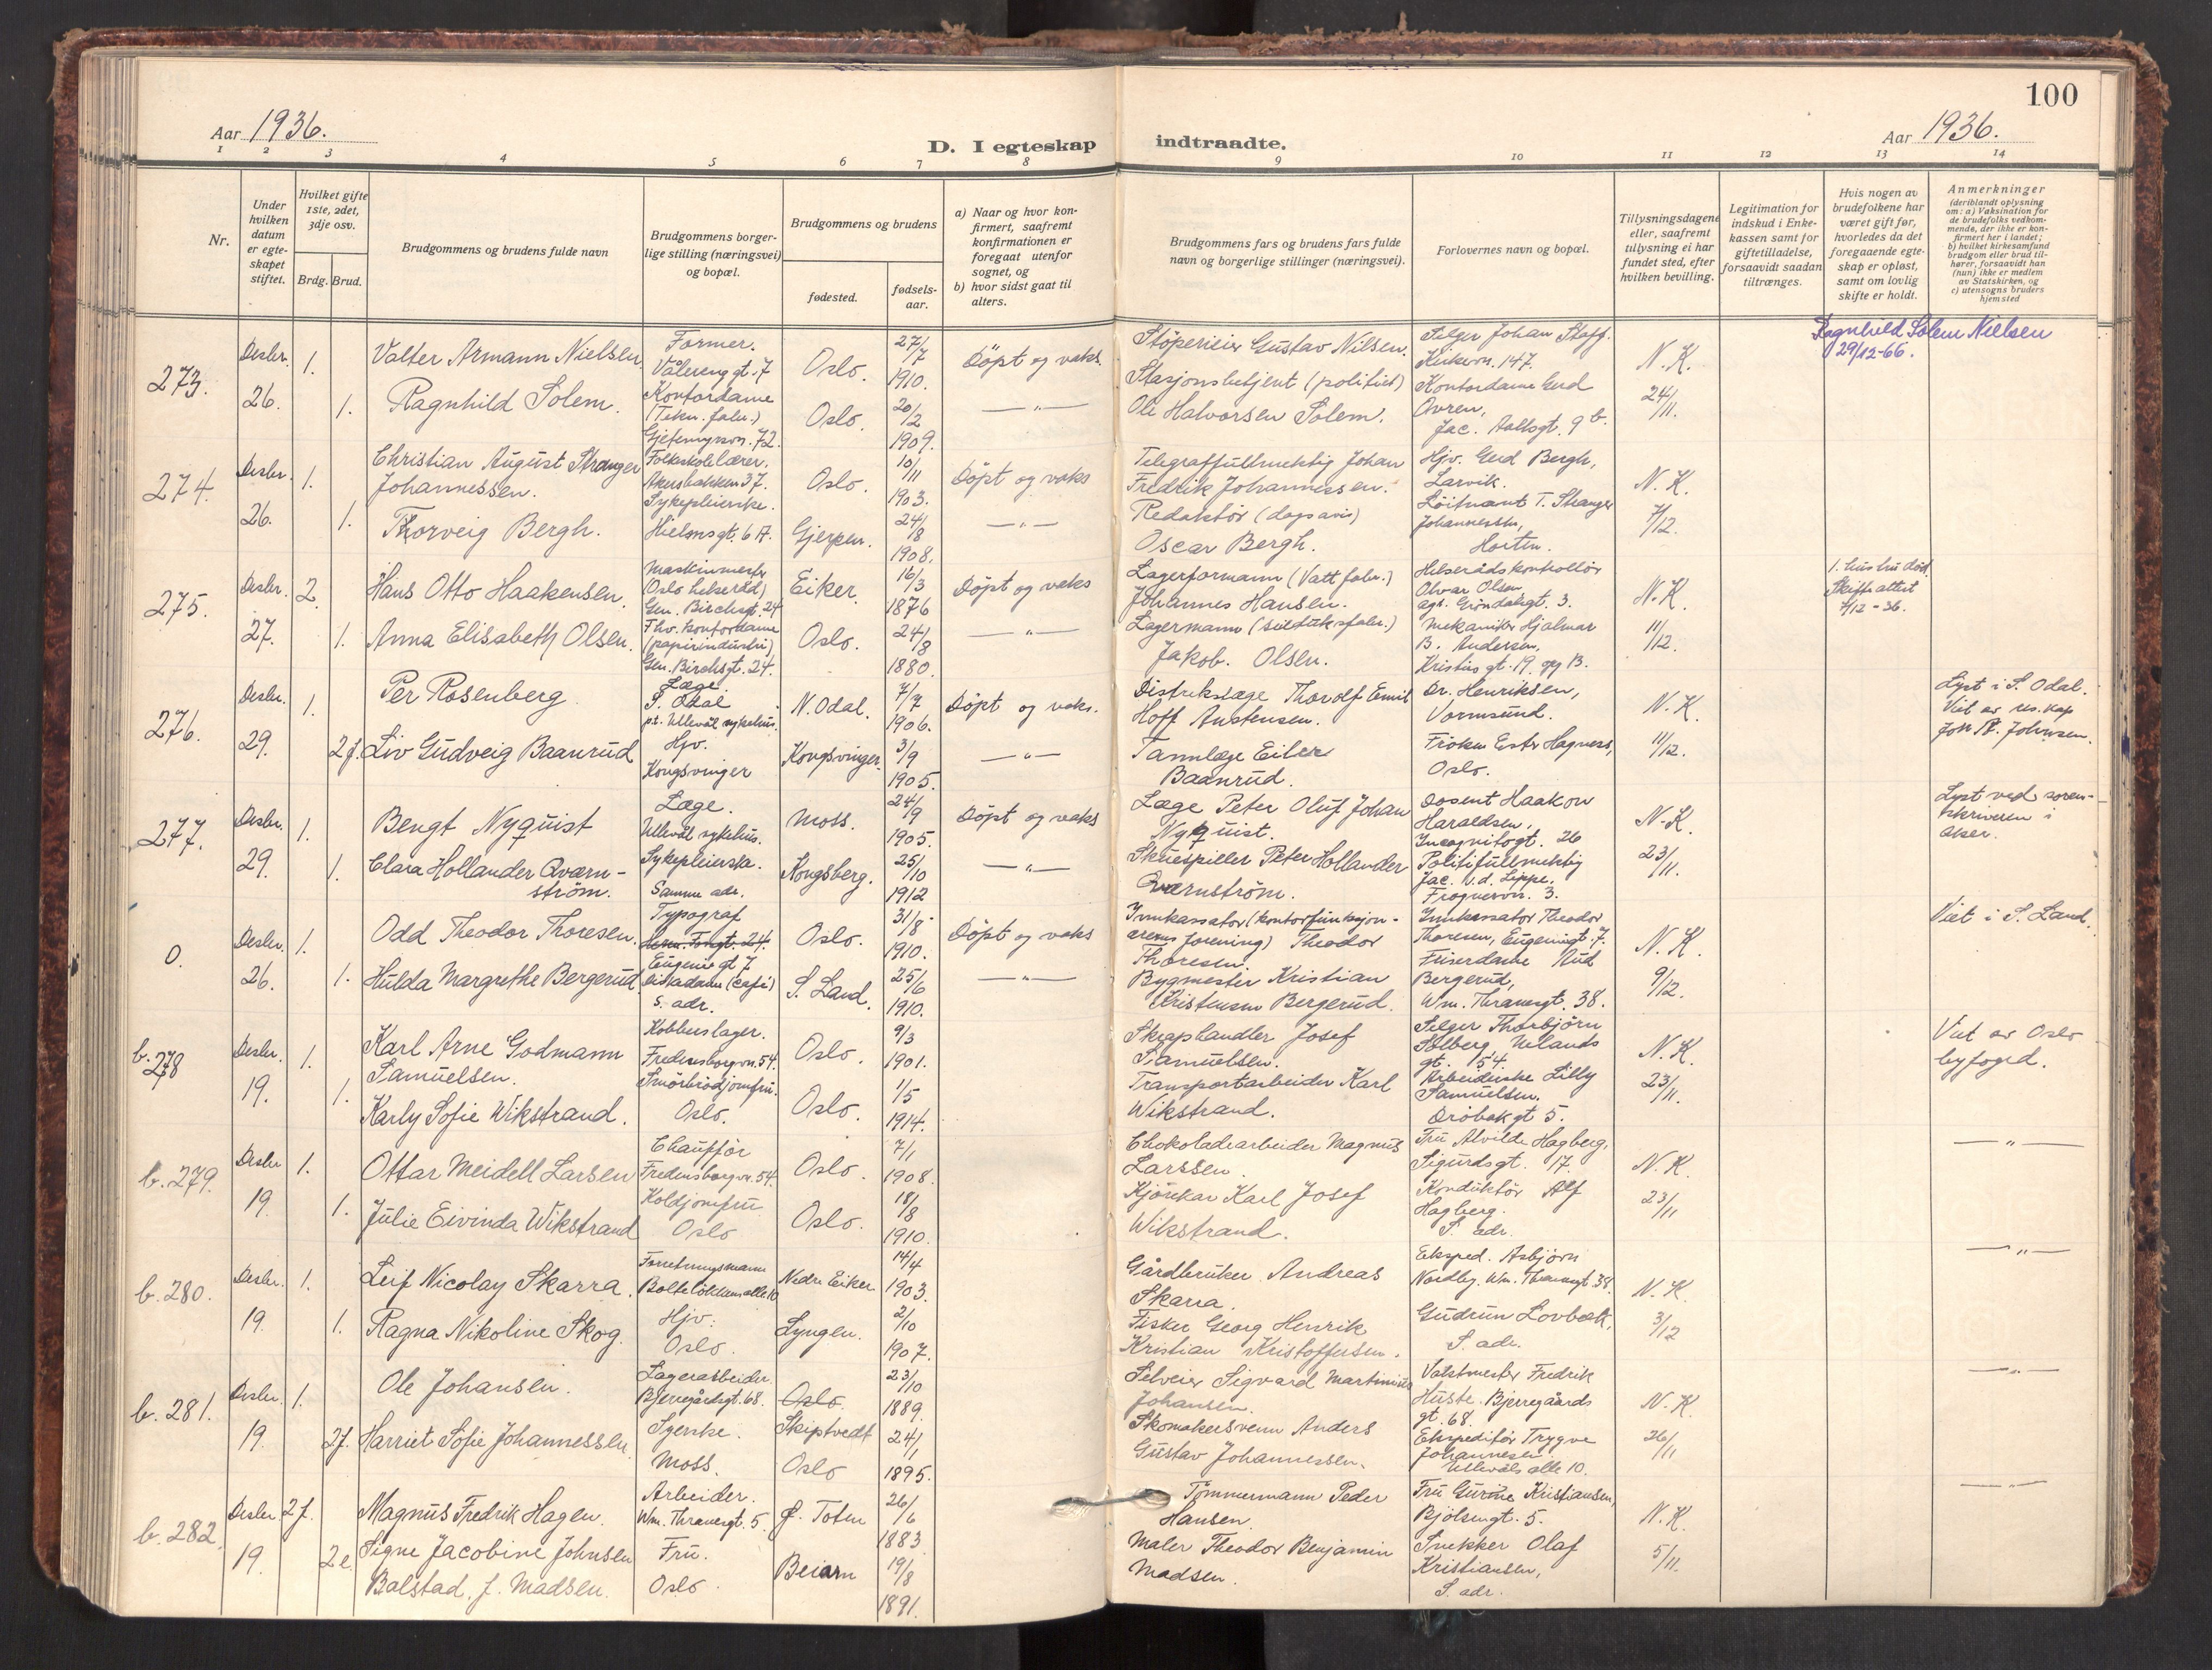 100
Aar 1936.
D. I egteskap
indtraadte.
Aar 1936.
1 2 3 4 5 6 7 8 9 10 11 12 13 14
Nr.
Under hvilken datum er egte-skapet stiftet.
Hvilket gifte 1ste, 2det, 3dje osv.
Brdg. Brud.
Brudgommens og brudens fulde navn
Brudgommens borger-lige stilling (næringsvei) og bopæl.
Brudgommens og brudens
fødested.
fødsels-aar.
a) Naar og hvor kon-firmert, saafremt konfirmationen er foregaat utenfor sognet, og
b) hvor sidst gaat til alters.
Brudgommens fars og brudens fars fulde navn og borgerlige stillinger (næringsvei).
Forlovernes navn og bopæl.
Tillysningsdagene eller, saafremt tillysning ei har fundet sted, efter hvilken bevilling.
Legitimation for indskud i Enke-kassen samt for giftetilladelse, forsaavidt saadan tiltrænges.
Hvis nogen av brudefolkene har været gift før, hvorledes da det foregaaende egte-skap er opløst, samt om lovlig skifte er holdt.
Anmerkninger (deriblandt oplysning om: a) Vaksination for de brudefolks vedkom-mende, der ikke er kon-firmert her i landet; b) hvilket kirkesamfund brudgom eller brud til-hører, forsaavidt han (hun) ikke er medlem av Statskirken, og c) utensogns bruders hjemsted
273. Desbr. 26. 1.
Valter Armann Nielsen.
Former. Vålerenggt. 7
Oslo. 27/7 1910.
Döpt og vaks.
Stöperieier Gustav Nilsen.
Selger Johan Staff. Kirkevn. 147.
N.K. 24/11.
Ragnhild Solem Nielsen 29/12-66.
1. Ragnhild Solem.
Kontordame (Tekn. fabr.) Gjetemyrsvn. 72.
Oslo. 20/2 1909.
— " —
Stasjonsbetjent (politiet) Ole Halvorsen Solem.
Kontordame Gerd Ovren, Jac. Aallsgt. 9 b.
274. Desbr. 26. 1.
Christian August Stranger Johannessen.
Folkskolelærer. Akersbakken 37.
Oslo. 10/11 1903.
Döpt og vaks
Telegraffullmektig Johan Fredrik Johannessen.
Hjv. Gerd Bergh, Larvik.
N.K. 7/12.
1. Thorveig Bergh.
Sykepleierske. Hielmsgt. 6 A.
Gjerpen. 24/8 1908.
— " —
Redaktör (dagsavis) Oscar Bergh.
Löitnant T. Stranger Johannessen, Horten.
275. Desbr. 27. 2.
Hans Otto Haakensen.
Maskinmester (Oslo helseråd) Gen. Birchsgt. 24
Eiker. 16/3 1876
Döpt og vaks
Lagerformann (Vattfabr.) Johannes Hansen.
Helserådskontrollör Olvar Olsen, Ags. Gröndalsgt. 3.
N.K. 11/12.
1. hustru död. Skifteattest 4/12-36.
1. Anna Elisabeth Olsen.
Fhv. kontordame (papirindustri) Gen. Birchsgt. 24.
Oslo. 24/8 1880.
— " —
Lagermann (seilduksfabr.) Jakob Olsen.
Mekaniker Hjalmar B. Andersen, Kristiis gt. 19. opg B.
276. Desbr. 29. 1.
Per Rosenberg
Læge. S. Odal p.t. Ullevål sykehus.
N. Odal. 7/7 1906.
Döpt og vaks.
Distriktslæge Thorolf Emil Hoff Austensen.
Dr. Henriksen, Vormsund.
N.K. 11/12.
Lyst i S. Odal. Viet av res. kap Joh Johnsen.
2 f. Liv Gudveig Baanrud
Hjv. Kongsvinger
Kongsvinger. 3/9 1905.
— " —
Tannlæge Eiler Baanrud.
Fröken Ester Hagness, Oslo.
277. Desbr. 29. 1.
Bengt Nyquist
Læge. Ullevål sykehus.
Moss. 24/9 1905.
Döpt og vaks
Læge Peter Oluf Johan Nyquist.
Dosent Haakon Haraldsen, Incognitogt. 26
N.K. 23/11.
Lyst ved soren-skriveren i Aker.
1. Clara Hollander Qværn-ström.
Sykepleierske. Samme adr.
Kongsberg. 25/10 1912
— " —
Skuespiller Peter Hollander Qværnström.
Politifullmektig Jac. v.d. Lippe. Frognervn. 3.
0. Desbr. 26. 1.
Odd Theodor Thoresen.
Typograf Herm. Fossgt. 24. Eugenies gt 7
Oslo. 31/8 1910.
Döpt og vaks
Innkassator (kontorfunksjon-ærenes forening) Theodor Thoresen
Innkassator Theodor Thoresen, Eugeniesgt. 7.
N.K. 9/12.
Viet i S. Land.
1. Hulda Margrethe Bergerud.
Bistadame (café) s. adr.
S. Land. 25/6 1910.
— " —
Bygmester Kristian Kristensen Bergerud.
Friserdame Aud Bergerud, Wm. Thranesgt. 38.
b. 278 Desbr. 19. 1.
Karl Arne Godmann Samuelsen.
Kobberslager. Fredensborgvn. 54.
Oslo. 9/3 1901.
Skraphandler Josef Samuelsen.
Selger Thorbjörn Solberg Uelands gt. 54.
N.K. 23/11.
Viet av Oslo byfoged.
1. Karly Sofie Wikstrand.
Smörbrödjomfru. Oslo.
Oslo. 1/5 1914.
Transportarbeider Karl Wikstrand.
Arbeiderske Lilly Samuelsen. Dröbakgt 5.
b. 279. Desbr 19. 1.
Ottar Meidell Larsen
Chaufför Fredensborgvn. 54.
Oslo. 7/1 1908.
Chokoladearbeider Magnus Larssen.
Fru Alvilde Hagberg, Sigurdsgt. 17.
N.K. 23/11
— " —
1. Julie Eivinda Wikstrand
Koldjomfru Oslo
Oslo. 18/8 1910.
Kjörekar Karl Josef Wikstrand.
Konduktör Alf Hagberg. S. adr.
b. 280. Desbr. 19. 1.
Leif Nicolay Skarra.
Forretningsmann Bolteløkkens alle 10
Nedre Eiker. 14/4 1903.
Gårdbruker Andreas Skarra.
Eksped. Asbjörn Nordby. Wm. Thranesgt. 38.
N.K. 3/12
— " —
1. Ragna Nikoline Skog.
Hjv: Oslo.
Lyngen. 2/10 1907.
Fisker Georg Henrik Kristian Kristoffersen.
Gudrun Lovbakk, S. adr.
b. 281. Desbr. 19. 1.
Ole Johansen.
Lagerarbeider. Bjerregårdsgt. 68.
Oslo. Skiptvedt 23/10 1889.
Selveier Sigvard Martinius Johansen.
Vaktmester Fredrik Huste. Bjerregaards gt. 68.
N.K. 26/11
— " —
2 f. Harriet Sofie Johannessen
Syerske. Moss.
Oslo 24/1 1895.
Skomakersvenn Anders Gustav Johannessen.
Ekspeditör Trygve Johannesen Ullevåls alle 10.
b. 282. Desbr. 19. 2 f.
Magnus Fredrik Hagen.
Arbeider. Wm. Thranesgt. 5.
Ö. Toten 26/6 1883
Tömmermann Peder Hansen.
Fru Gurine Kristiansen, Bjölsengt. 5.
N.K. 5/11.
— " —
2 e. Signe Jacobine Johnsen Balstad, f. Madsen.
Fru. Oslo.
Beiarn 19/8 1891.
Maler Theodor Benjamin Madsen.
Snekker Olaf Kristiansen, S. adr.